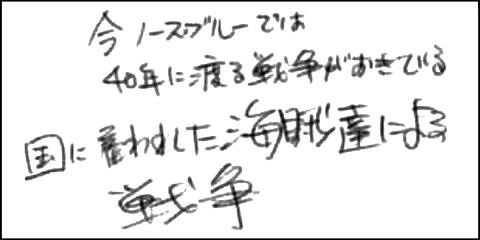 今ノースブルーでは
40年に渡る戦争がおきている
国に雇われた海賊達による
戦争